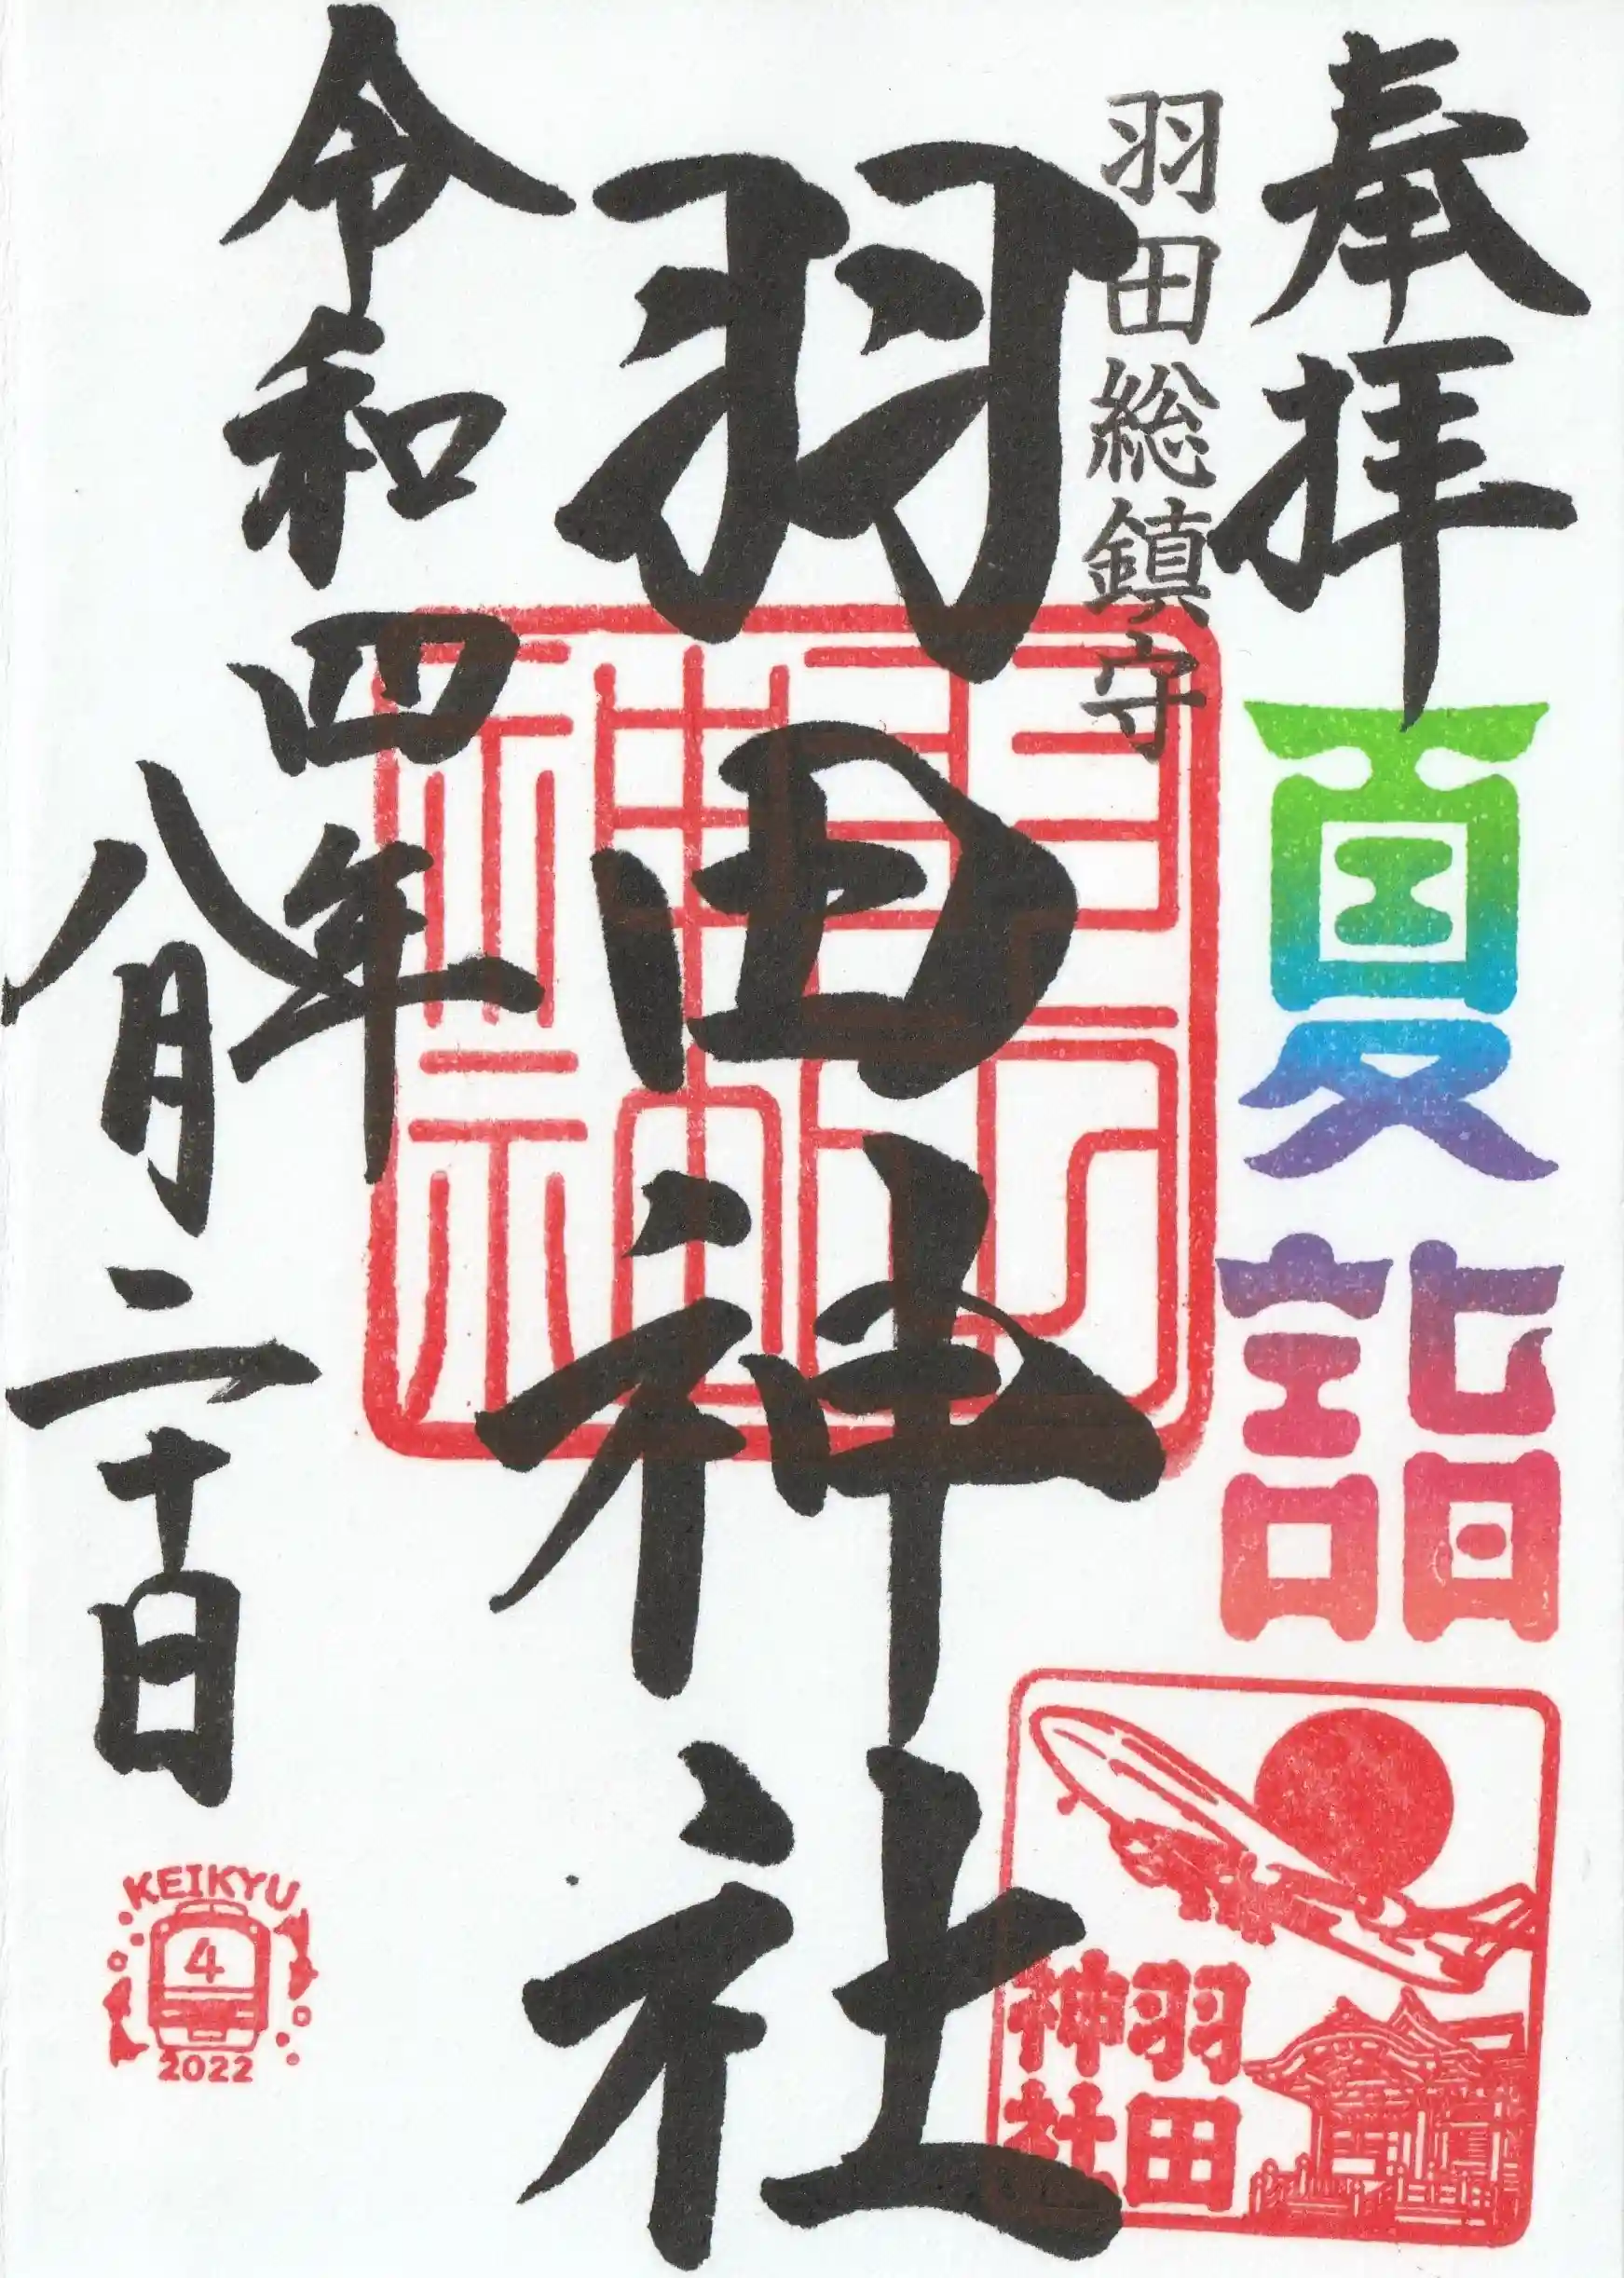 奉拝
夏詣
羽田総鎮守
羽田神社
令和四年
八月二十日
羽田
神社
KEIKYU
4
2022